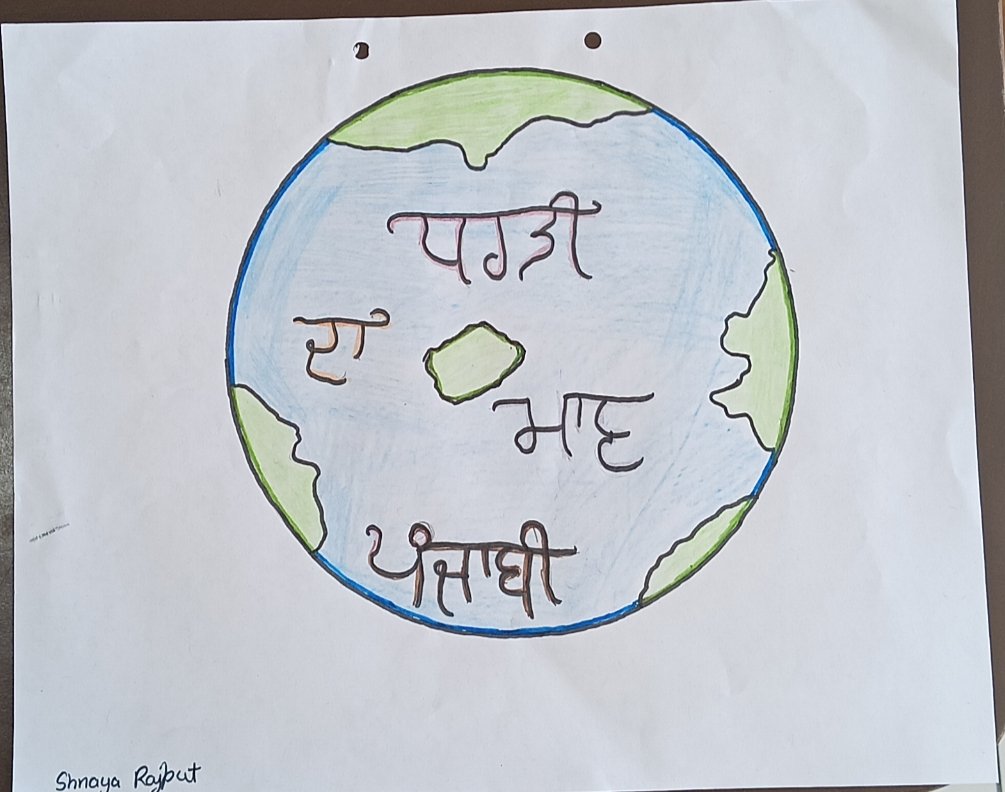 ਧਰਤੀ
ਦਾ
ਮਾਣ
ਪੰਜਾਬੀ
Shnaya Rajput